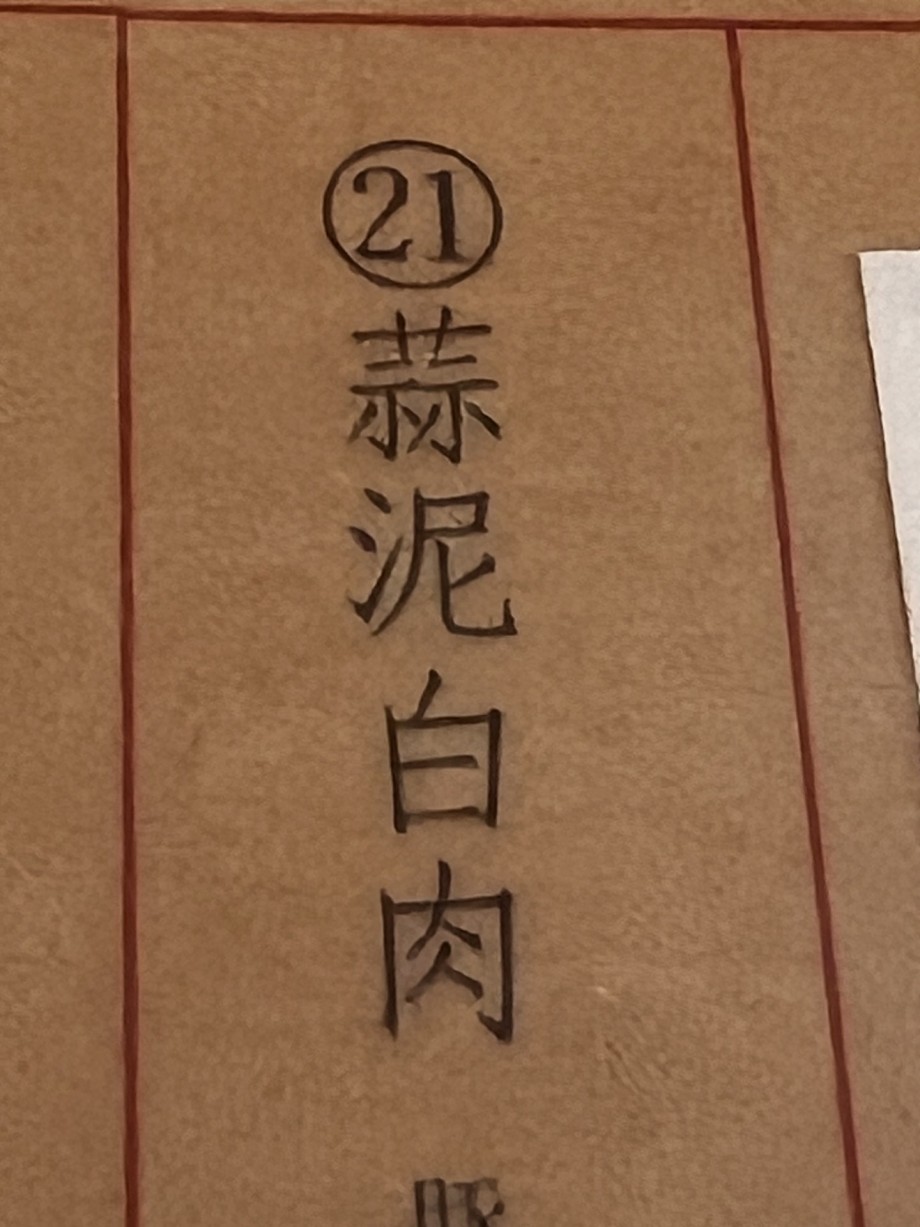 ㉑蒜泥白肉